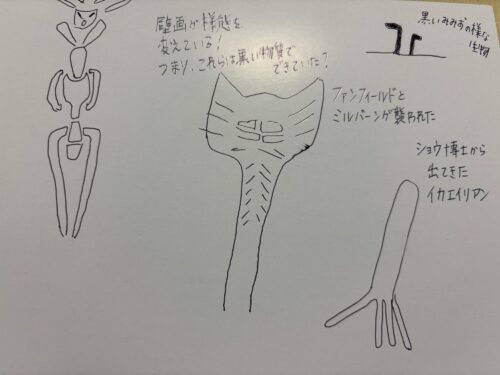 壁画が様態を
変えている!
つまり、これらは黒い物質で
できていた?
黒いみみずの様な
生物
ファンフィールドと
ミルバーンが襲われた
ショウ博士から
出てきた
イカエイリアン